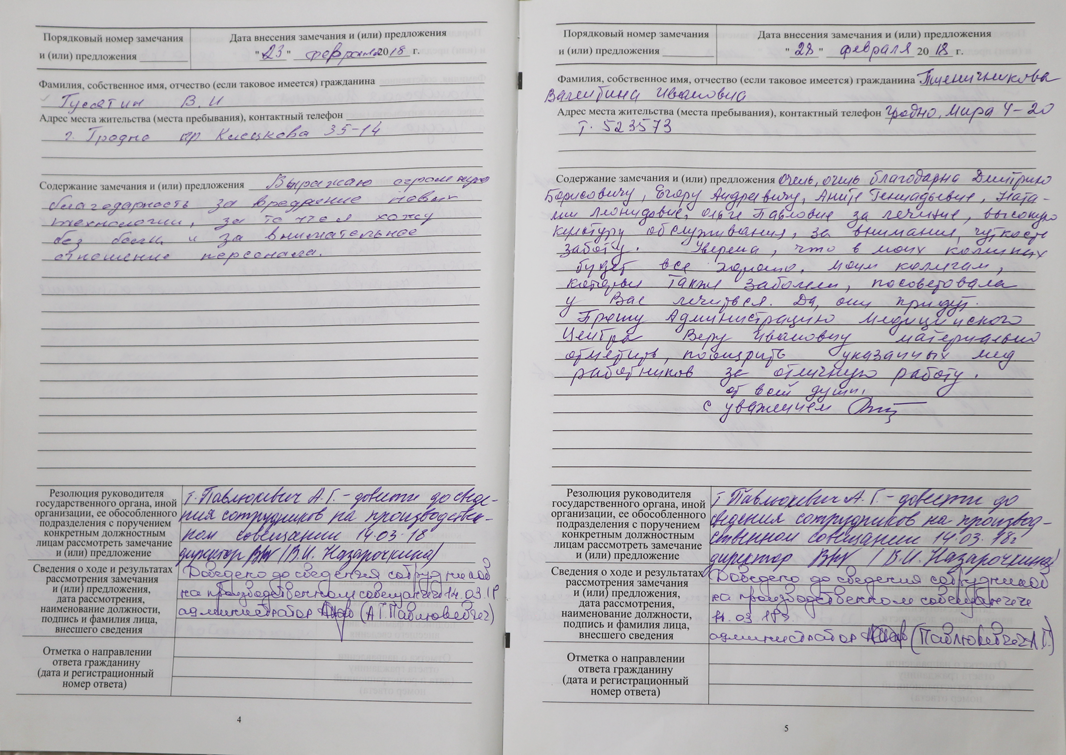 Порядковый номер замечания
и (или) предложения
Дата внесения замечания и (или) предложения
"23" февраля 2018 г.
Фамилия, собственное имя, отчество (если таковое имеется) гражданина
Гусятин В. И
Адрес места жительства (места пребывания), контактный телефон
г. Гродно пр Клецкова 35-14
Содержание замечания и (или) предложения Выражаю огромную
благодарность за внедрение новых
технологии, за то что я хожу
без боли и за внимательное
отношение персонала.
Резолюция руководителя
государственного органа, иной
организации, ее обособленного
подразделения с поручением
конкретным должностным
лицам рассмотреть замечание
и (или) предложение
т. Павлюкевич А.Г. - довести до сведе-
ния сотрудников на производствен-
ном совещании 14.03.18
директор /В.И. Назарочкина/
Сведения о ходе и результатах
рассмотрения замечания
и (или) предложения,
дата рассмотрения,
наименование должности,
подпись и фамилия лица,
внесшего сведения
Доведено до сведения сотрудников
на производственном совещании 14.03.18
администратор (А Г Павлюкевич)
Отметка о направлении
ответа гражданину
(дата и регистрационный
номер ответа)
4
Порядковый номер замечания
и (или) предложения
Дата внесения замечания и (или) предложения
"28" февраля 2018 г.
Фамилия, собственное имя, отчество (если таковое имеется) гражданина Пшеничникова
Валентина Ивановна
Адрес места жительства (места пребывания), контактный телефон Гродно, Мира 4-20
т. 523573
Содержание замечания и (или) предложения Очень, очень благодарна Дмитрию
Борисовичу, Егору Андреевичу, Аните Геннадьевне, Ната-
лии Леонидовне, Ольге Павловне за лечение, высокую
культуру обслуживания, за внимания, чуткость
заботу. Уверена, что в моих коленных
будет все хорошо. Моим коллегам,
которые также заболели, посоветовала
у Вас лечиться. Да, они придут.
Прошу Администрацию Медицинского
Центра Веру Ивановну материально
отметить, поощрить указанных мед
работников за отличную работу.
от всей души.
с уважением
Резолюция руководителя
государственного органа, иной
организации, ее обособленного
подразделения с поручением
конкретным должностным
лицам рассмотреть замечание
и (или) предложение
т. Павлюкевич А.Г. - довести до
сведения сотрудников на производ-
ственном совещании 14.03.18г
директор /В.И. Назарочкина/
Сведения о ходе и результатах
рассмотрения замечания
и (или) предложения,
дата рассмотрения,
наименование должности,
подпись и фамилия лица,
внесшего сведения
Доведено до сведения сотрудников
на производственном совещании
14.03 18г
администратор (Павлюкевич А Г.)
Отметка о направлении
ответа гражданину
(дата и регистрационный
номер ответа)
5